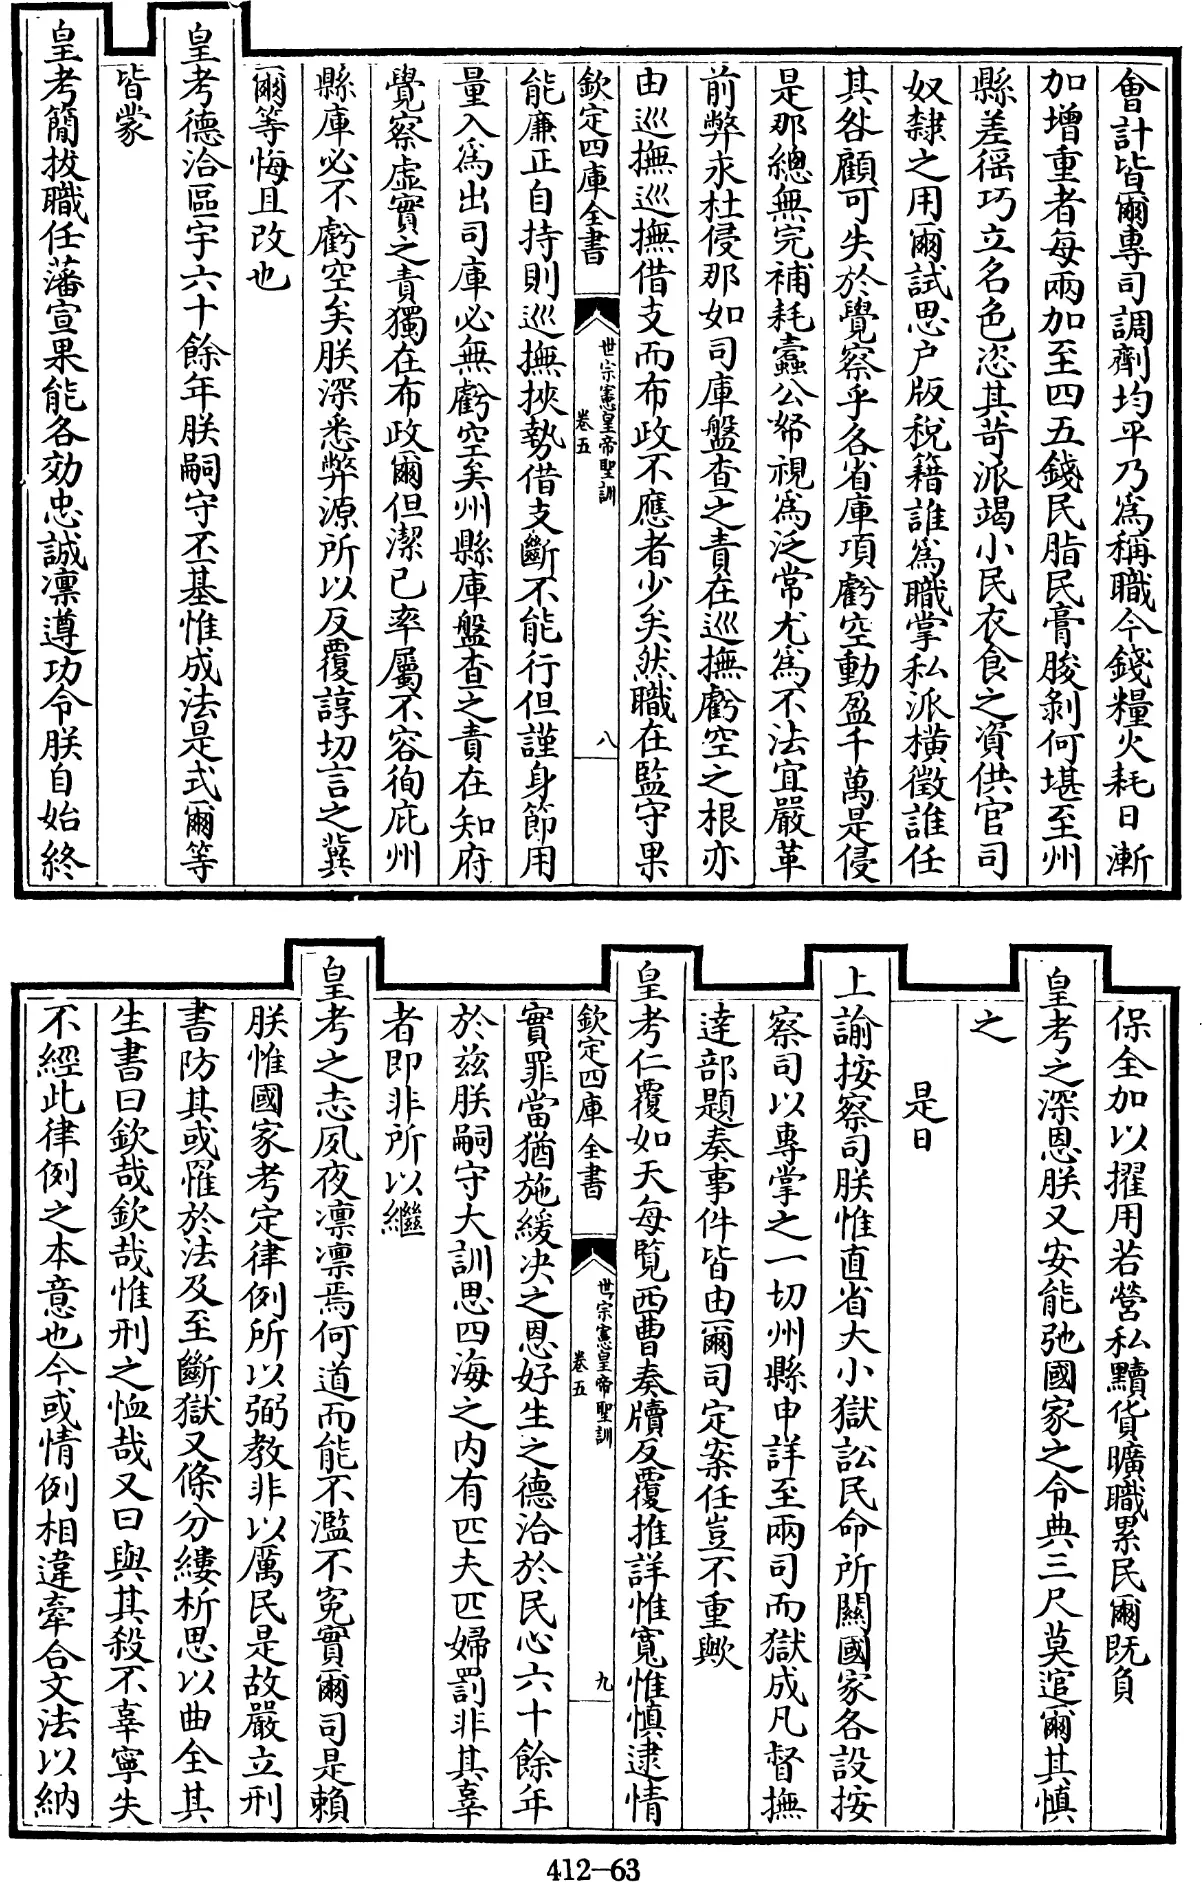 會計皆爾專司調劑均平乃為稱職今錢糧火耗日漸
加增重者每兩加至四五錢民脂民膏朘剝何堪至州
縣差徭巧立名色恣其苛派竭小民衣食之資供官司
奴隸之用爾試思户版税籍誰為職掌私派横徵誰任
其咎顧可失於覺察乎各省庫項虧空動盈千萬是侵
是那總無完補耗蠹公帑視為泛常尤為不法宜嚴革
前弊永杜侵那如司庫盤查之責在巡撫虧空之根亦
由巡撫巡撫借支而布政不應者少矣然職在監守果
欽定四庫全書
世宗憲皇帝聖訓
卷五
八
能亷正自持則巡撫挾勢借支斷不能行但謹身節用
量入為出司庫必無虧空矣州縣庫盤查之責在知府
覺察虛實之責獨在布政爾但潔已率屬不容徇庇州
縣庫必不虧空矣朕深悉弊源所以反覆諄切言之冀
爾等悔且改也
皇考德洽區宇六十餘年朕嗣守丕基惟成法是式爾等
皆蒙
皇考簡拔職任藩宣果能各効忠誠凛遵功令朕自始終
保全加以擢用若營私黷貨曠職累民爾既負
皇考之深恩朕又安能弛國家之令典三尺莫逭爾其慎
之
是日
上諭按察司朕惟直省大小獄訟民命所關國家各設按
察司以專掌之一切州縣申詳至兩司而獄成凡督撫
達部題奏事件皆由爾司定案任豈不重歟
皇考仁覆如天每覽西曹奏牘反覆推詳惟寬惟慎逮情
欽定四庫全書
世宗憲皇帝聖訓
卷五
九
實罪當猶施緩决之恩好生之德洽於民心六十餘年
於兹朕嗣守大訓思四海之内有匹夫匹婦罰非其辜
者即非所以繼
皇考之志夙夜凛凛焉何道而能不濫不寃實爾司是賴
朕惟國家考定律例所以弼教非以厲民是故嚴立刑
書防其或罹於法及至斷獄又條分縷析思以曲全其
生書曰欽哉欽哉惟刑之恤哉又曰與其殺不辜寧失
不經此律例之本意也今或情例相違牽合文法以納
412-63